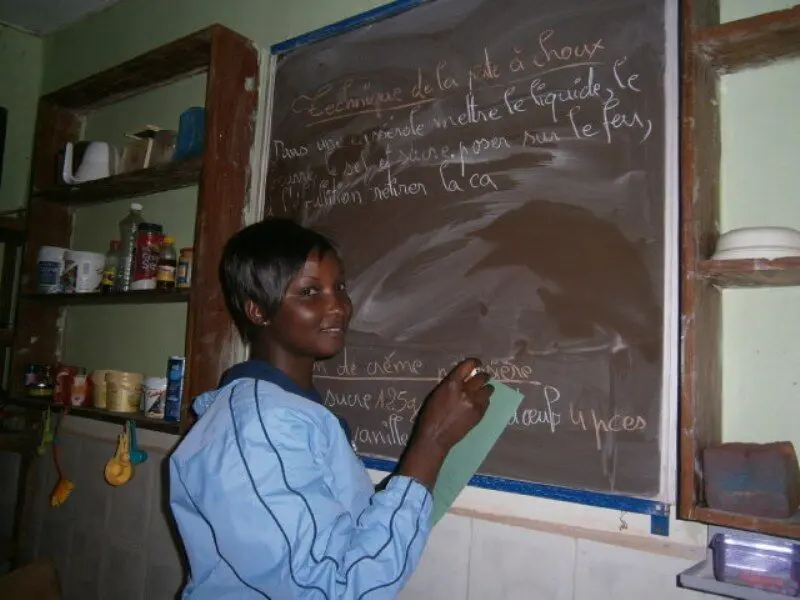 Technique de la pate à choux
Dans une casserole mettre le liquide, le
beurre, le sel et sucre poser sur le feu,
à l'ébullition retirer la ca
de crême
sucre 125g oeuf 4 pces
vanill